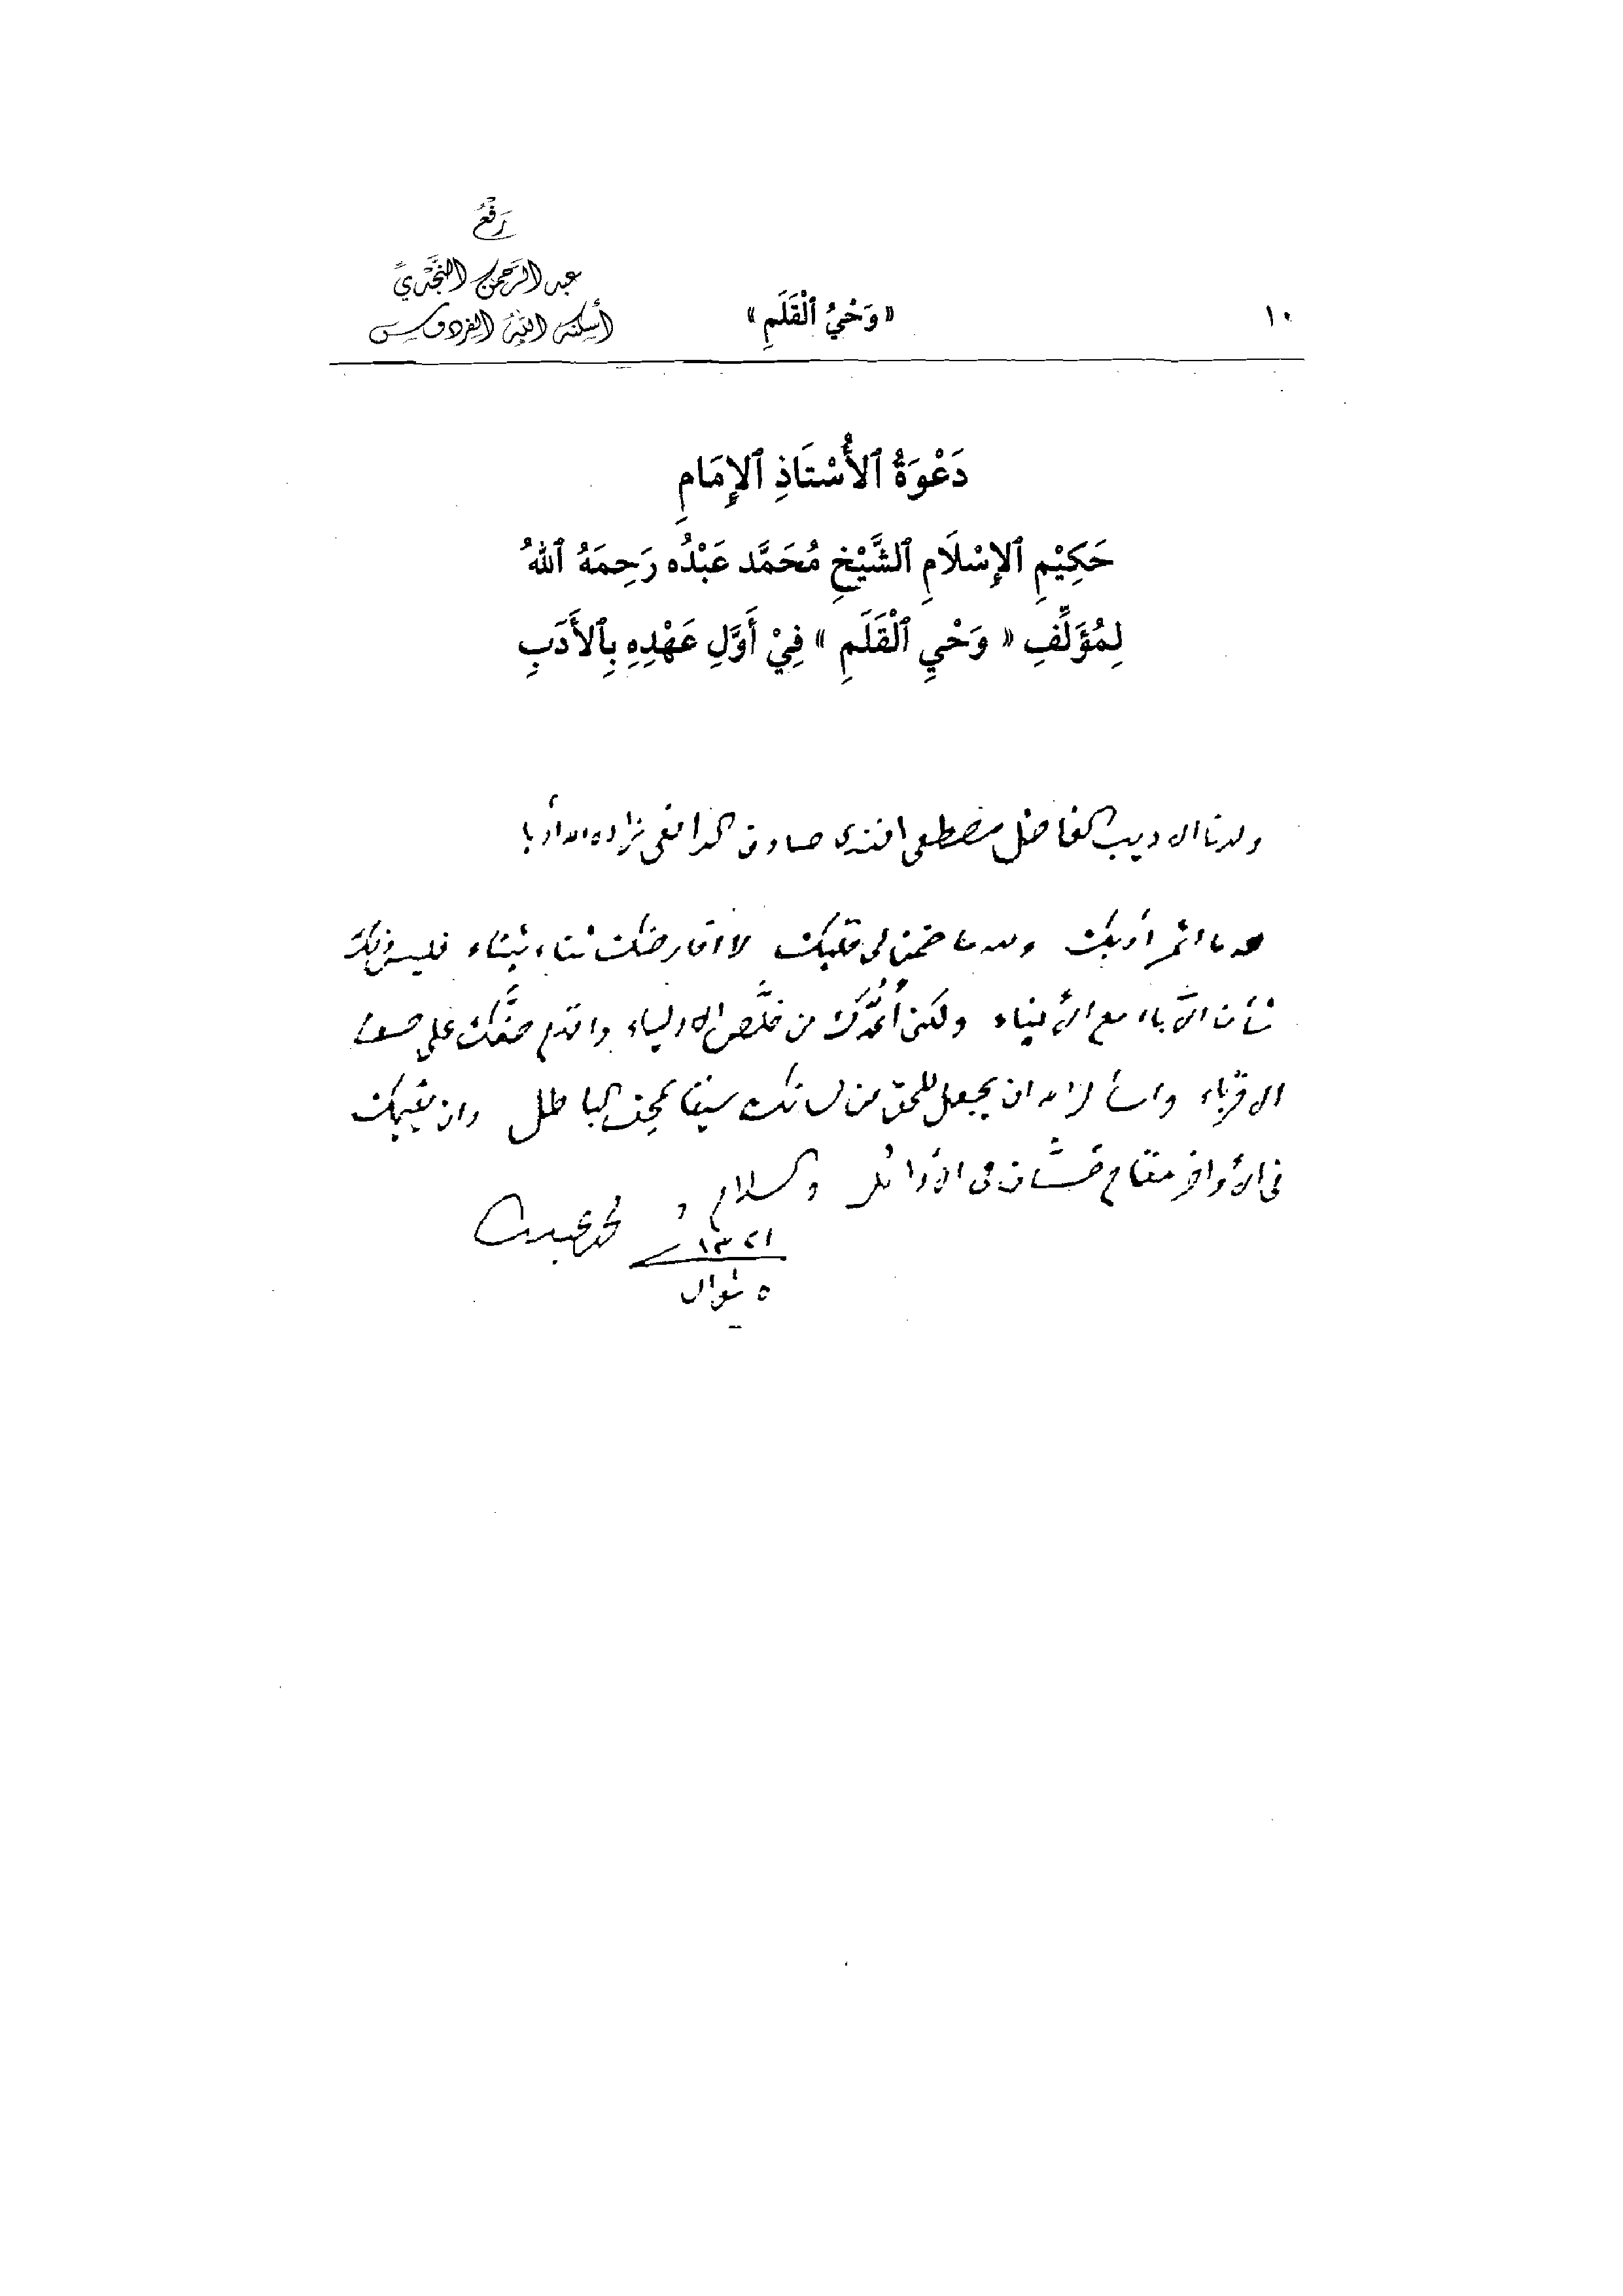 رَفْعُ
عبد الرَّحمن النَّجْديِّ
أسكنه اللّه الفردوس
١٠
« وَحْيُ ٱلْقَلَمِ »
دَعْوَةُ ٱلأُسْتَاذِ ٱلإِمَامِ
حَكِيْمِ ٱلإِسْلَامِ ٱلشَّيْخِ مُحَمَّد عَبْدُه رَحِمَهُ ٱللهُ
لِمُؤَلِّفِ « وَحْيِ ٱلْقَلَمِ » فِيْ أَوَّلِ عَهْدِهِ بِٱلأَدَبِ
ولدنا الاديب الفاضل مصطفى افندى صادق الرافعى زاده الله أدبا
لله ما اثمر أدبك ولله ما ضمن لى قلبك لا اقارضك ثناء بثناء فليس ذلك
شأن الآباء مع الأبناء ولكنى أعُدُّك من خلَّص الاولياء واقدم صفَّك على صف
الاقرباء واسأل الله ان يجعل للحق من لسانك سيفا يمحق الباطل وان يقيمك
فى الأواخر مقام حسَّان فى الأوائل والسلام ،
محمد عبده
١٣٢١
٥ شوال